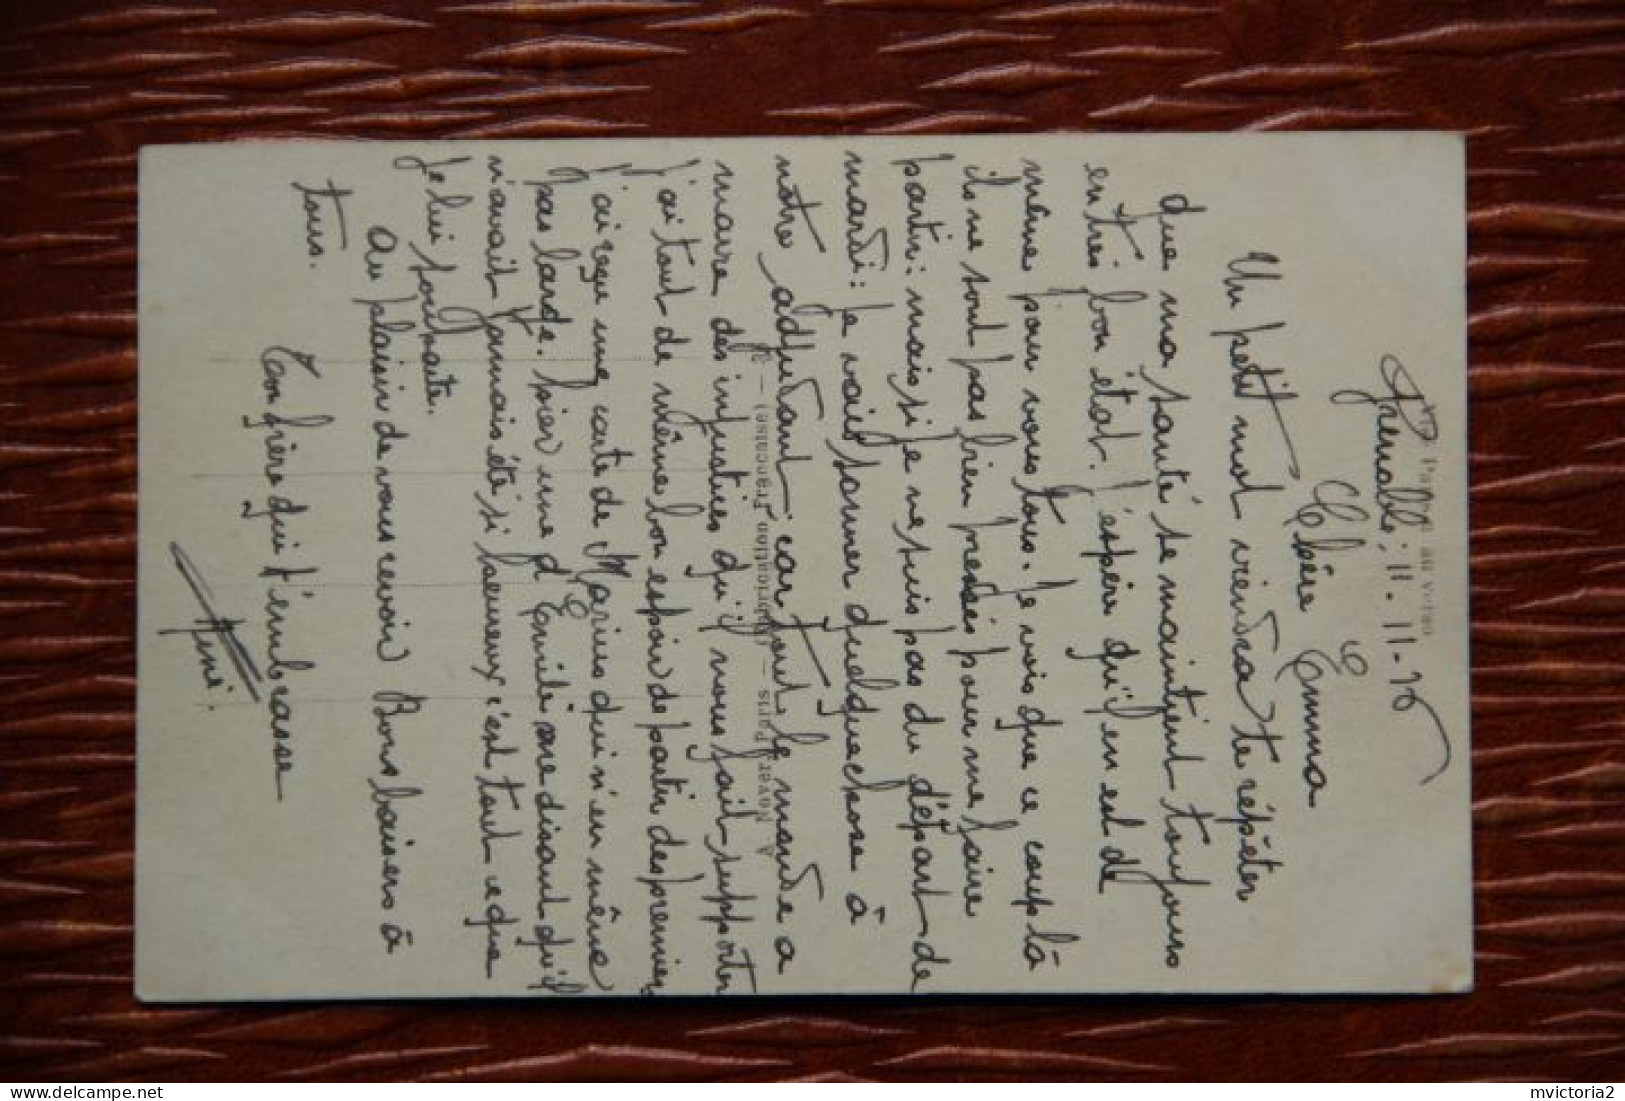 Grenoble, 11-11-16
Chère Emma
Un petit mot viendra te répéter
que ma santé se maintient toujours
en très bon état. J'espère qu'il en est de
même pour vous tous. Je vois que ce coup là
ils ne sont pas bien pressés pour me faire
partir: mais si je ne suis pas du départ de
mardi: je vais sonner quelque chose à
notre adjudant car tout le monde a
marre des injustices qu'il nous fait supporter
j'ai tout de même bon espoir de partir des premiers
j'ai reçu une carte de Marius qui n'en mène
pas large. hier une d'Emile me disant qu'il
n'avait jamais été si heureux, c'est tout ce que
je lui souhaite.
Au plaisir de vous revoir Bons baisers à
tous.
Ton frère qui t'embrasse
A. Noyer, Paris — Fabrication Française
mvictoria2